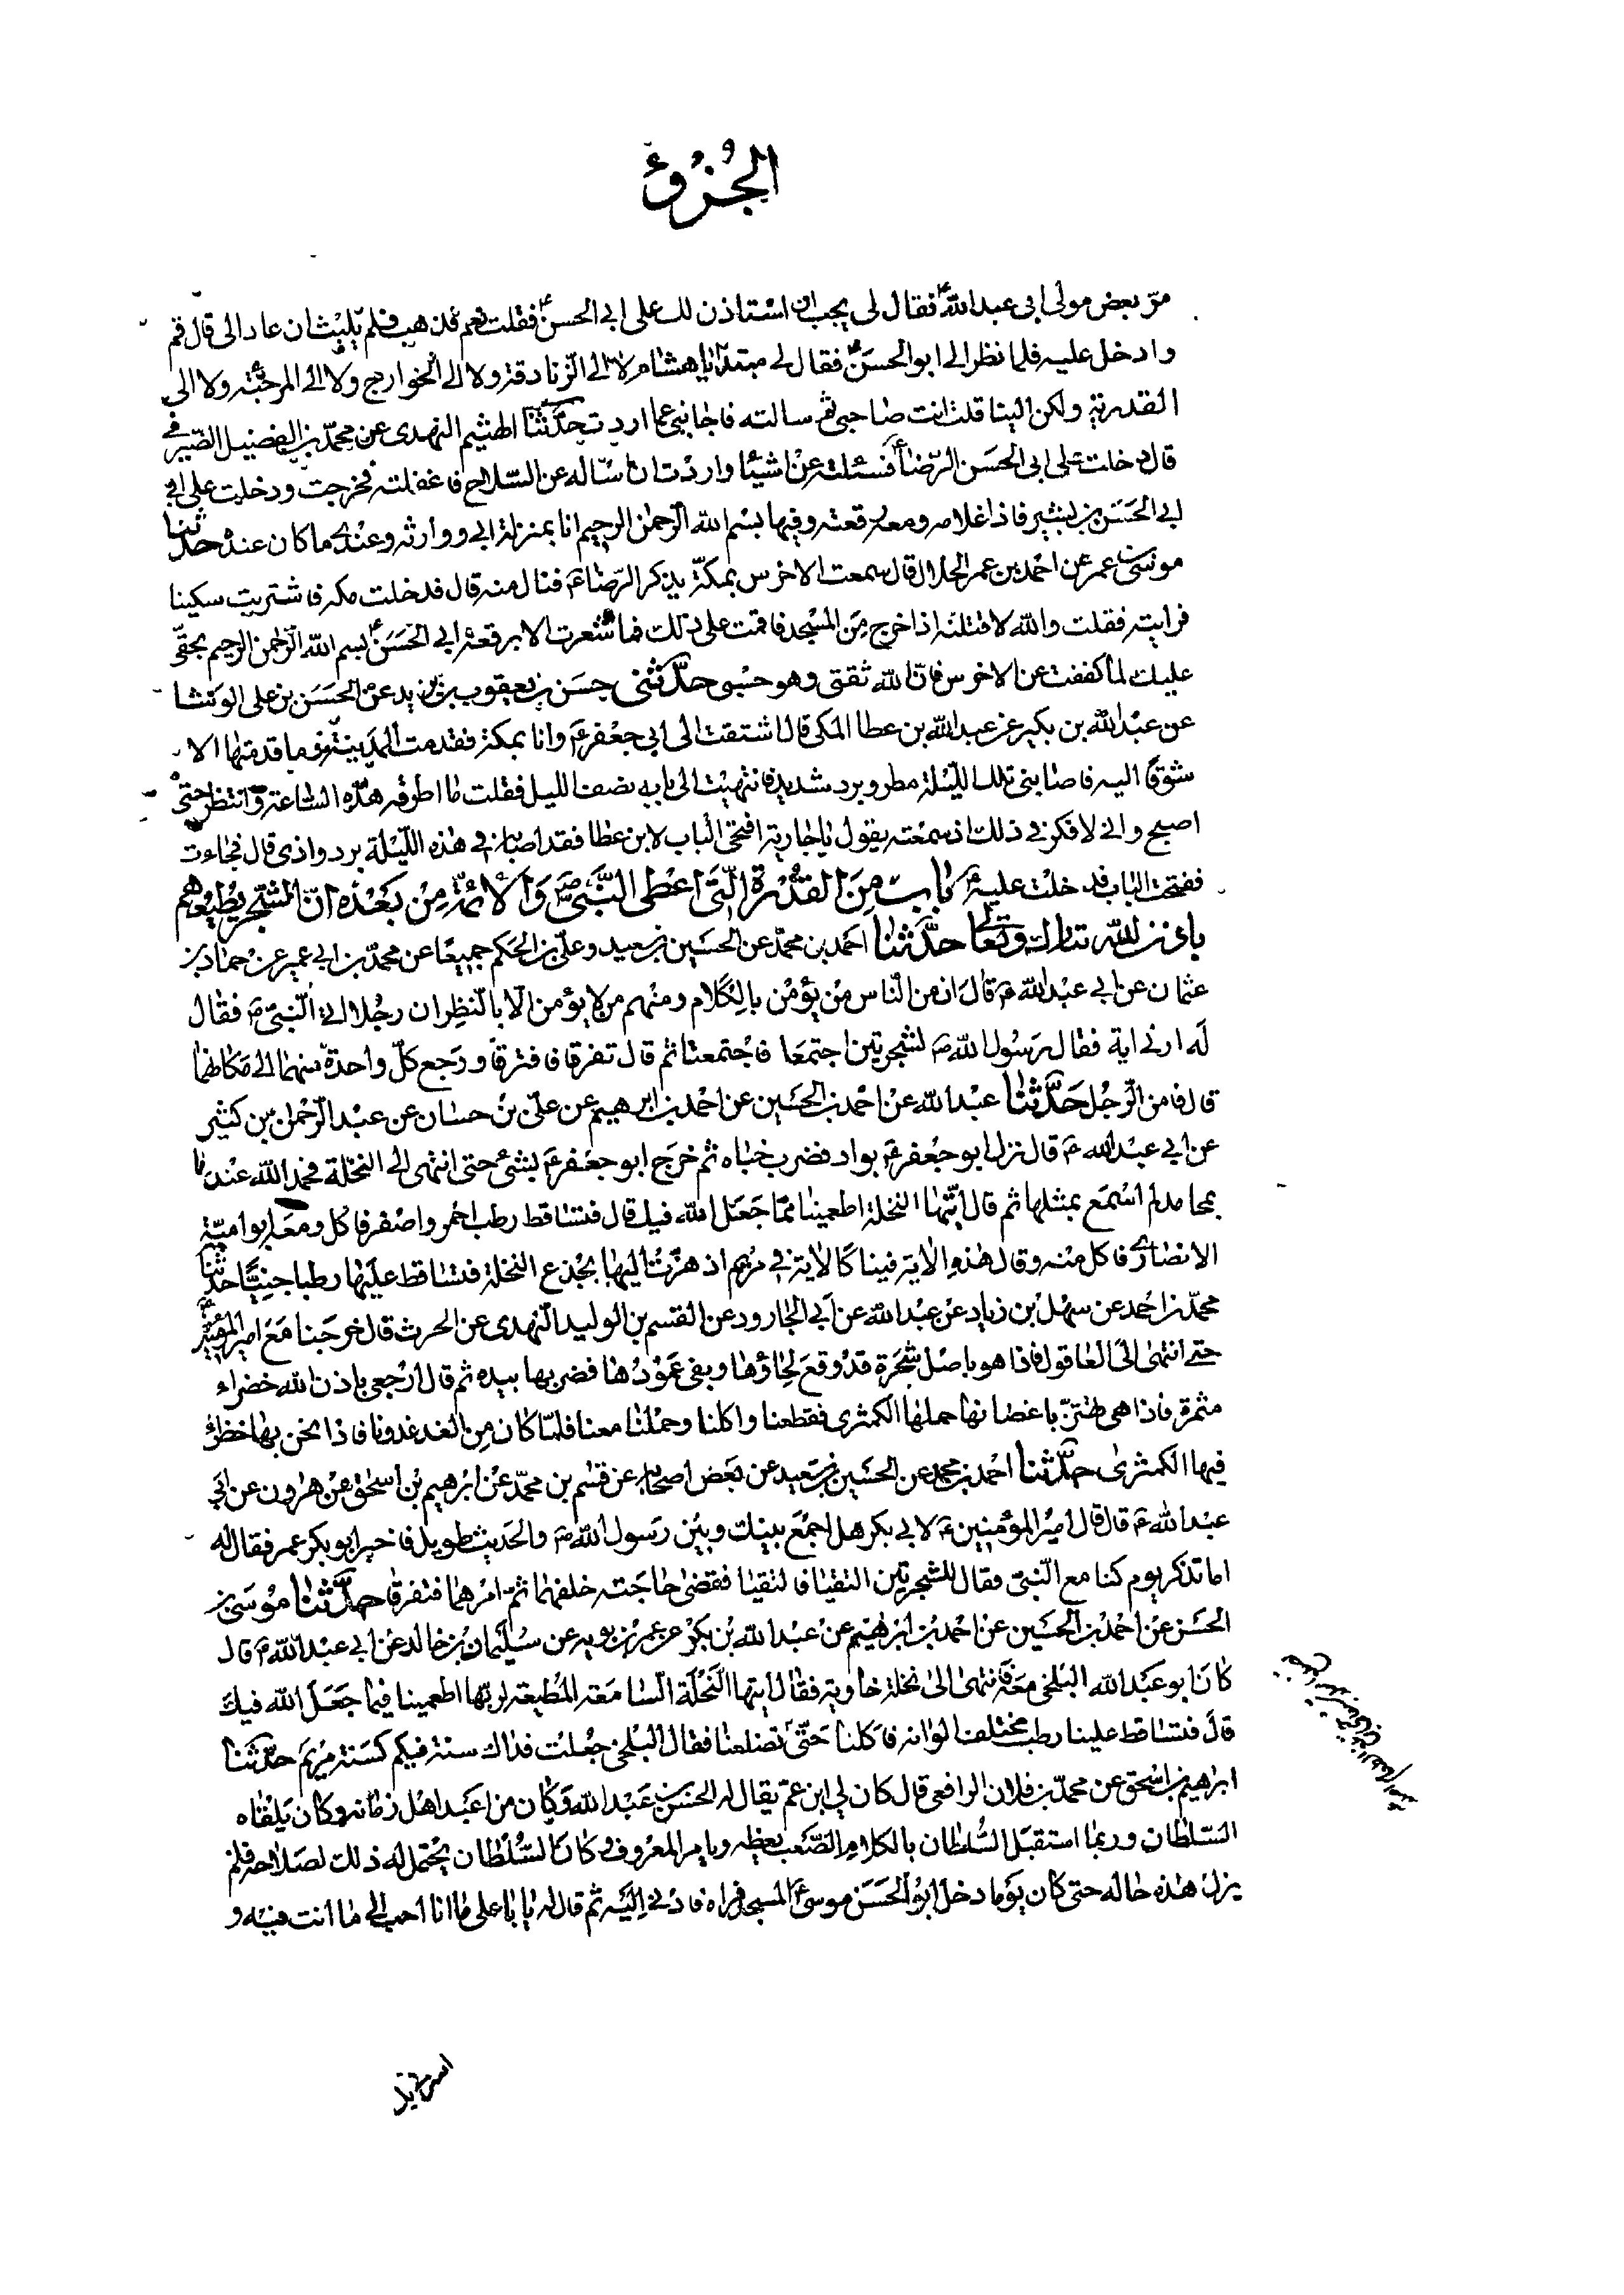 الجُزُوءُ
مرّ بعض مولى ابى عبد الله ع فقال لى يجب ان استاذن لك على ابى الحسن ع فقلت نعم فذهب فلم يلبث ان عاد الى قال قم
وادخل عليه فلما نظر الى ابو الحسن ع فقال لى مبتدئا يا هشام لا الى الزنادقة ولا الى الخوارج ولا الى المرجئة ولا الى
القدرية ولكن الينا قلت انت صاحبى ثم سالته فاجابنى عما اردت حدّثنا الهثيم النهدى عن محمّد بن الفضيل الصّيرفى
قال دخلت على ابى الحسن الرّضا ع فسئلته عن اشياء واردت ان اساله عن السّلاح فاغفلته فخرجت ودخلت على ابى
ابى الحسن بن بشير فاذا غلامه ومعه رقعته وفيها بسم الله الرّحمن الرحيم انا بمنزلة ابى ووارثه وعندى ما كان عنده حدّثنا
موسى بن عمر عن احمد بن عمر الحلال قال سمعت الاخرس بمكّة يذكر الرّضا ع فنال منه قال فدخلت مكه فاشتريت سكينا
فرايته فقلت والله لاقتلنه اذا خرج من المسجد فاقمت على ذلك فما شعرت الا برقعة ابى الحسن ع بسم الله الرّحمن الرحيم بحقّى
عليك لما كففت عن الاخرس فانّ الله ثقتى وهو حسبى حدّثنى حسن بن يعقوب بن يزيد عن الحسن بن على الوشا
عن عبد الله بن بكير عن عبد الله بن عطا المكى قال اشتقت الى ابى جعفر ع وانا بمكة فقدمت المدينة وما قدمتها الا
شوقًا اليه فاصابنى تلك اللّيلة مطر وبرد شديد فانتهيت الى بابه نصف الليل فقلت ما اطرقه هذه السّاعة وانتظر حتى
اصبح وانى لافكر فى ذلك اذ سمعته يقول يا جارية افتحى الباب لابن عطا فقد اصابه فى هذه اللّيلة برد واذى قال فجاءت
ففتحت الباب فدخلت عليه ع باب مِنَ القُدْرة الّتى اعْطى النَّبىّ ص وَالائمّة مِنْ بَعْده انّ الشّجر يطيعهم
باذن الله تبارك وتعالى حدّثنا احمد بن محمّد عن الحسين بن سعيد وعلىّ بن الحكم جميعًا عن محمّد بن ابى عمير عن حماد بن
عثمان عن ابى عبد الله ع قال ان من النّاس من يؤمن بالكلام ومنهم من لا يؤمن الّا بالنّظر ان رجُلا اتى النّبىّ ص فقال
له ارنى اية فقال رسول الله ص لشجرتين اجتمعا فاجتمعتا ثم قال تفرقا فافترقا ورجع كلّ واحدة منهما الى مكانهما
قال فامن الرّجل حدّثنا عبد الله عن احمد بن الحسين عن احمد بن ابرهيم عن علىّ بن حسان عن عبد الرّحمن بن كثير
عن ابى عبد الله ع قال نزل ابو جعفر ع بواد فضرب خباه ثم خرج ابو جعفر ع يشئ حتى انتهى الى النخلة فحمد الله عندها
بمحامد لم اسمع بمثلها ثم قال ايّتها النخلة اطعمينا ممّا جعل الله فيك قال فتساقط رطب احمر واصفر فاكل ومعه ابو اميّة
الانصارى فاكل منه وقال هذه الاية فينا كالاية فى مريم اذ هزّت اليها بجذع النخلة فتساقط عليها رطبا جنيّا حدّثنا
محمّد بن احمد عن سهل بن زياد عن عبد الله عن ابى الجارود عن القسم بن الوليد النّهدى عن الحرث قال خرجنا مع امير المؤمنين ع
حتى انتهى الى العاقول فاذا هو باصل شجرة قد وقع لحاؤها وبقى عمودها فضربها بيده ثم قال ارجعى باذن الله خضراء
مثمرة فاذا هى تهتزّ باغصانها حملها الكمثرى فقطعنا واكلنا وحملنا معنا فلمّا كان من الغد غدونا فاذا نحن بها خضراء
فيها الكمثرى حدّثنا احمد بن محمد عن الحسين بن سعيد عن بعض اصحابه عن قسم بن محمّد عن ابرهيم بن اسحق عن هرون عن ابى
عبد الله ع قال قال امير المؤمنين ع لابى بكر هل اجمع بينك وبين رسول الله ص والحديث طويل فاخبر ابو بكر عمر فقال له
اما تذكر يوم كنا مع النّبىّ فقال للشجرتين التقيا فالتقيا فقضى حاجته خلفهما ثم امرهما فتفرقا حدّثنا موسى بن
الحسن عن احمد بن الحسين عن احمد بن ابرهيم عن عبد الله بن بكر عن عمر بن بويه عن سليمان بن خالد عن ابى عبد الله ع قال
كان ابو عبد الله البلخى معه فانتهى الى نخلة خاوية فقال ايتها النّخلة السّامعة المطيعة لربّها اطعمينا فيما جعل الله فيك
قال فتساقط علينا رطب مختلف الوانه فاكلنا حتّى تضلعنا فقال البلخى جعلت فداك سنة فيكم كسنة مريم حدّثنا
ابراهيم بن اسحق عن محمّد بن فلان الرافعى قال كان لى ابن عمّ يقال له الحسن بن عبد الله وكان من اعبد اهل زمانه وكان يلقاه
السّلطان وربما استقبل السّلطان بالكلام الصّعب يعظه ويامر المعروف وكان السّلطان يحتمل له ذلك لصلاحه فلم
يزل هذه حاله حتى كان يوما دخل ابو الحسن موسى ع المسجد فراه فادنى اليه ثم قال له يا با على ما انا احب الى ما انت فيه و